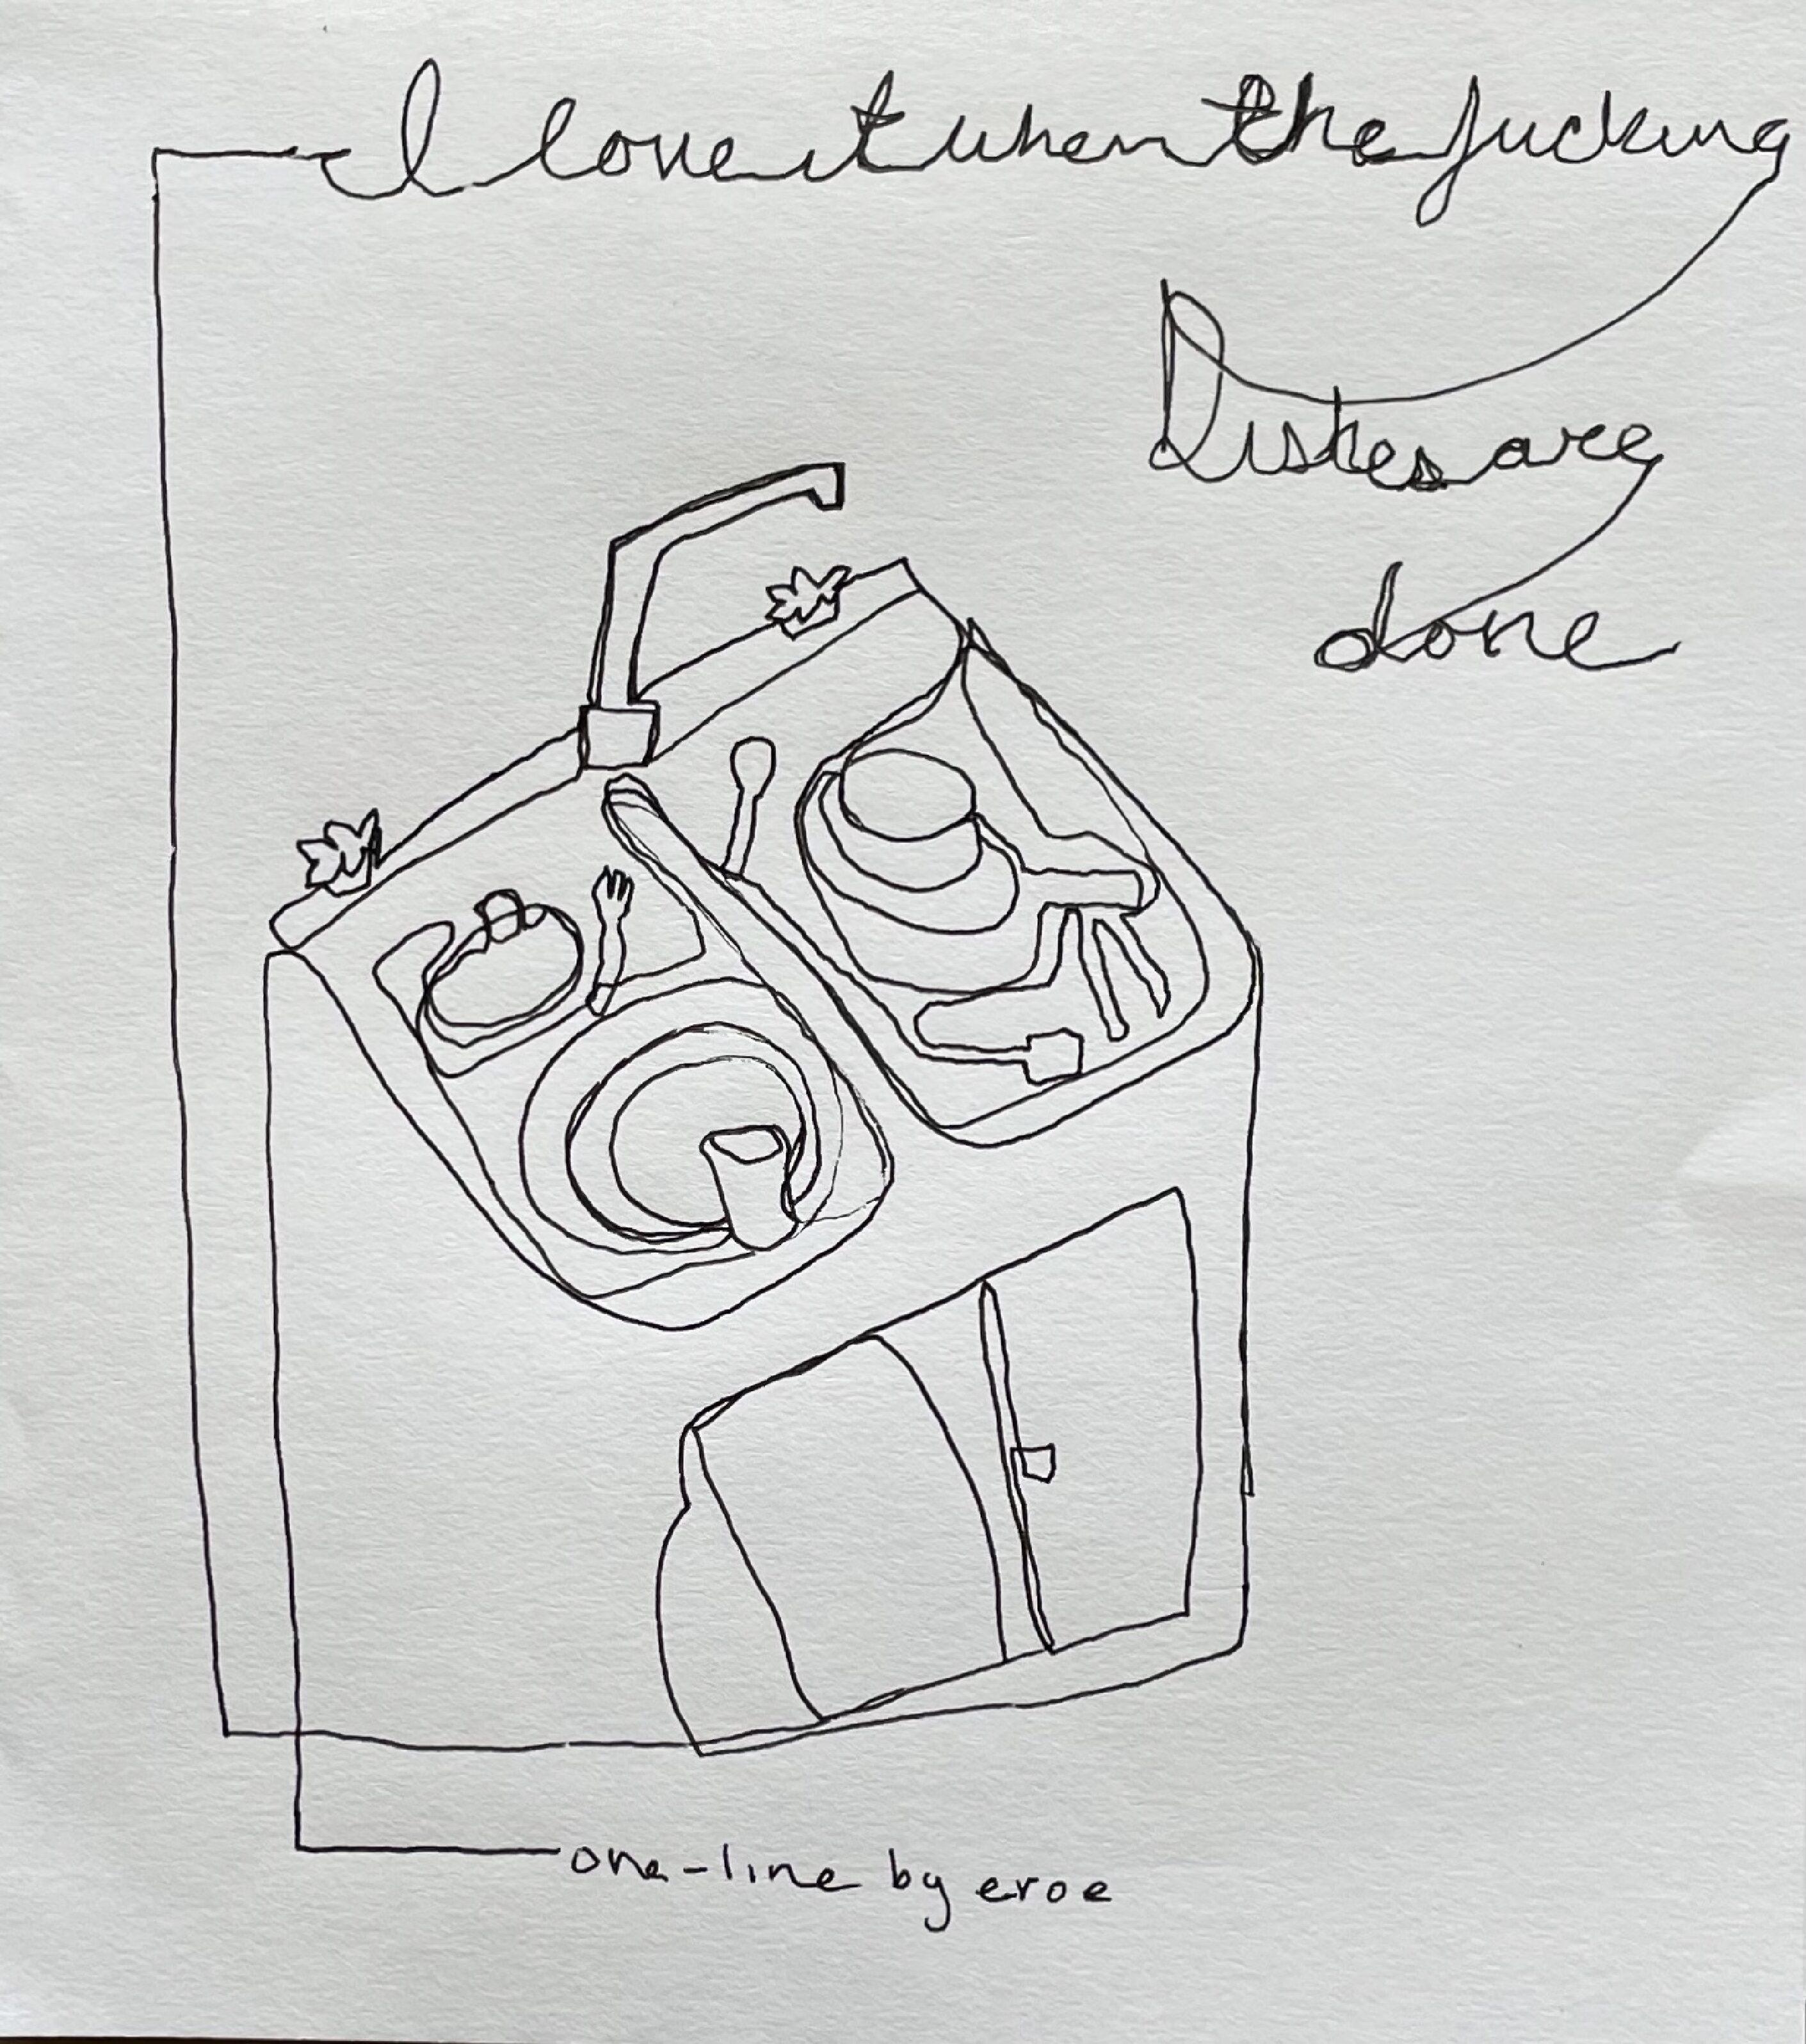 I love it when the fucking
Dishes are
done
one-line by eroe